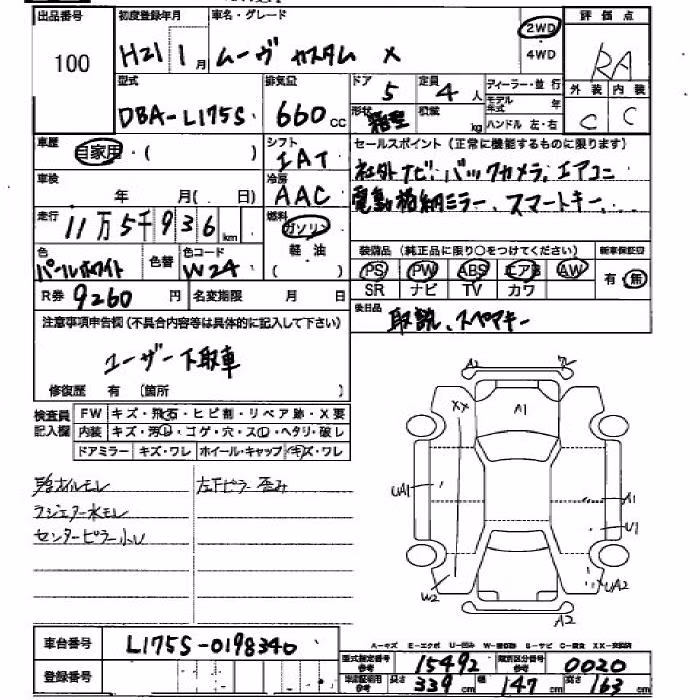 出品番号 100
初度登録年月 H21 1月
車名・グレード ムーヴ カスタム X
2WD・4WD
評価点 RA
型式 DBA-L175S
排気量 660cc
ドア 5
定員 4人
ディーラー・並行
モデル年式 年
外装 C 内装 C
形状 箱型
積載 kg
ハンドル 左・右
車歴 自家用・( )
シフト IAT
セールスポイント (正常に機能するものに限ります)
社外ナビ、バックカメラ、エアコン
電動格納ミラー、スマートキー、...
車検 年 月( 日)
冷房 AAC
走行 11万5千936km
燃料 ガソリン 軽・油 ( )
色 パールホワイト
色替
色コード W24
装備品 (純正品に限り○をつけてください)
新車保証書
PS PW ABS エアB AW
有・無
SR ナビ TV カワ
R券 9260円
名変期限 月 日
後日品 取説、スペアキー
注意事項申告欄 (不具合内容等は具体的に記入して下さい)
ユーザー下取車
修復歴 有 (箇所 )
検査員記入欄
FW キズ・飛石・ヒビ割・リペア跡・X要
内装 キズ・汚れ・コゲ・穴・スレ・ヘタリ・破レ
ドアミラー キズ・ワレ ホイール・キャップ キズ・ワレ
左下ピラー歪み
ラジエター水モレ
センターピラー小U
A2
XX
A1
UA1
A1
U1
W2
UA2
A2
車台番号 L175S-0198340
A-キズ E-エクボ U-凹み
型式指定番号 参考 15492
類別区分番号 参考 0020
登録番号
車認証用 参考 長さ 339cm 幅 147cm 高さ 163cm